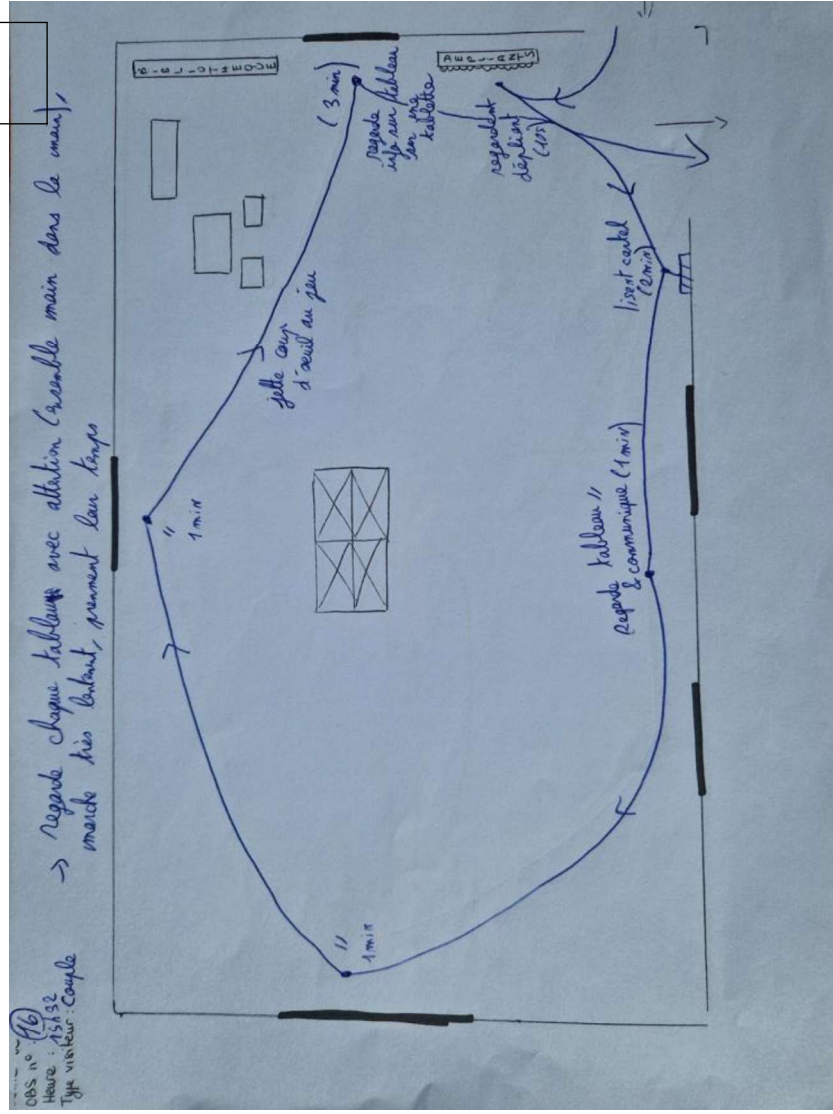 OBS n° 16
Heure : 15h32
Type visiteur : Couple
→ regarde chaque tableau avec attention (ensemble main dans la main),
marche très lentement, prennent leur temps
BIBLIOTHEQUE
(3 min)
regarde
info sur tableau
sur une
tablette
DEPLIANTS
regardent
dépliant
(10s)
lisent cartel
(2min)
jette coup
d'oeuil au jeu
"
1 min
Regarde tableau "
& communique (1 min)
"
1 min